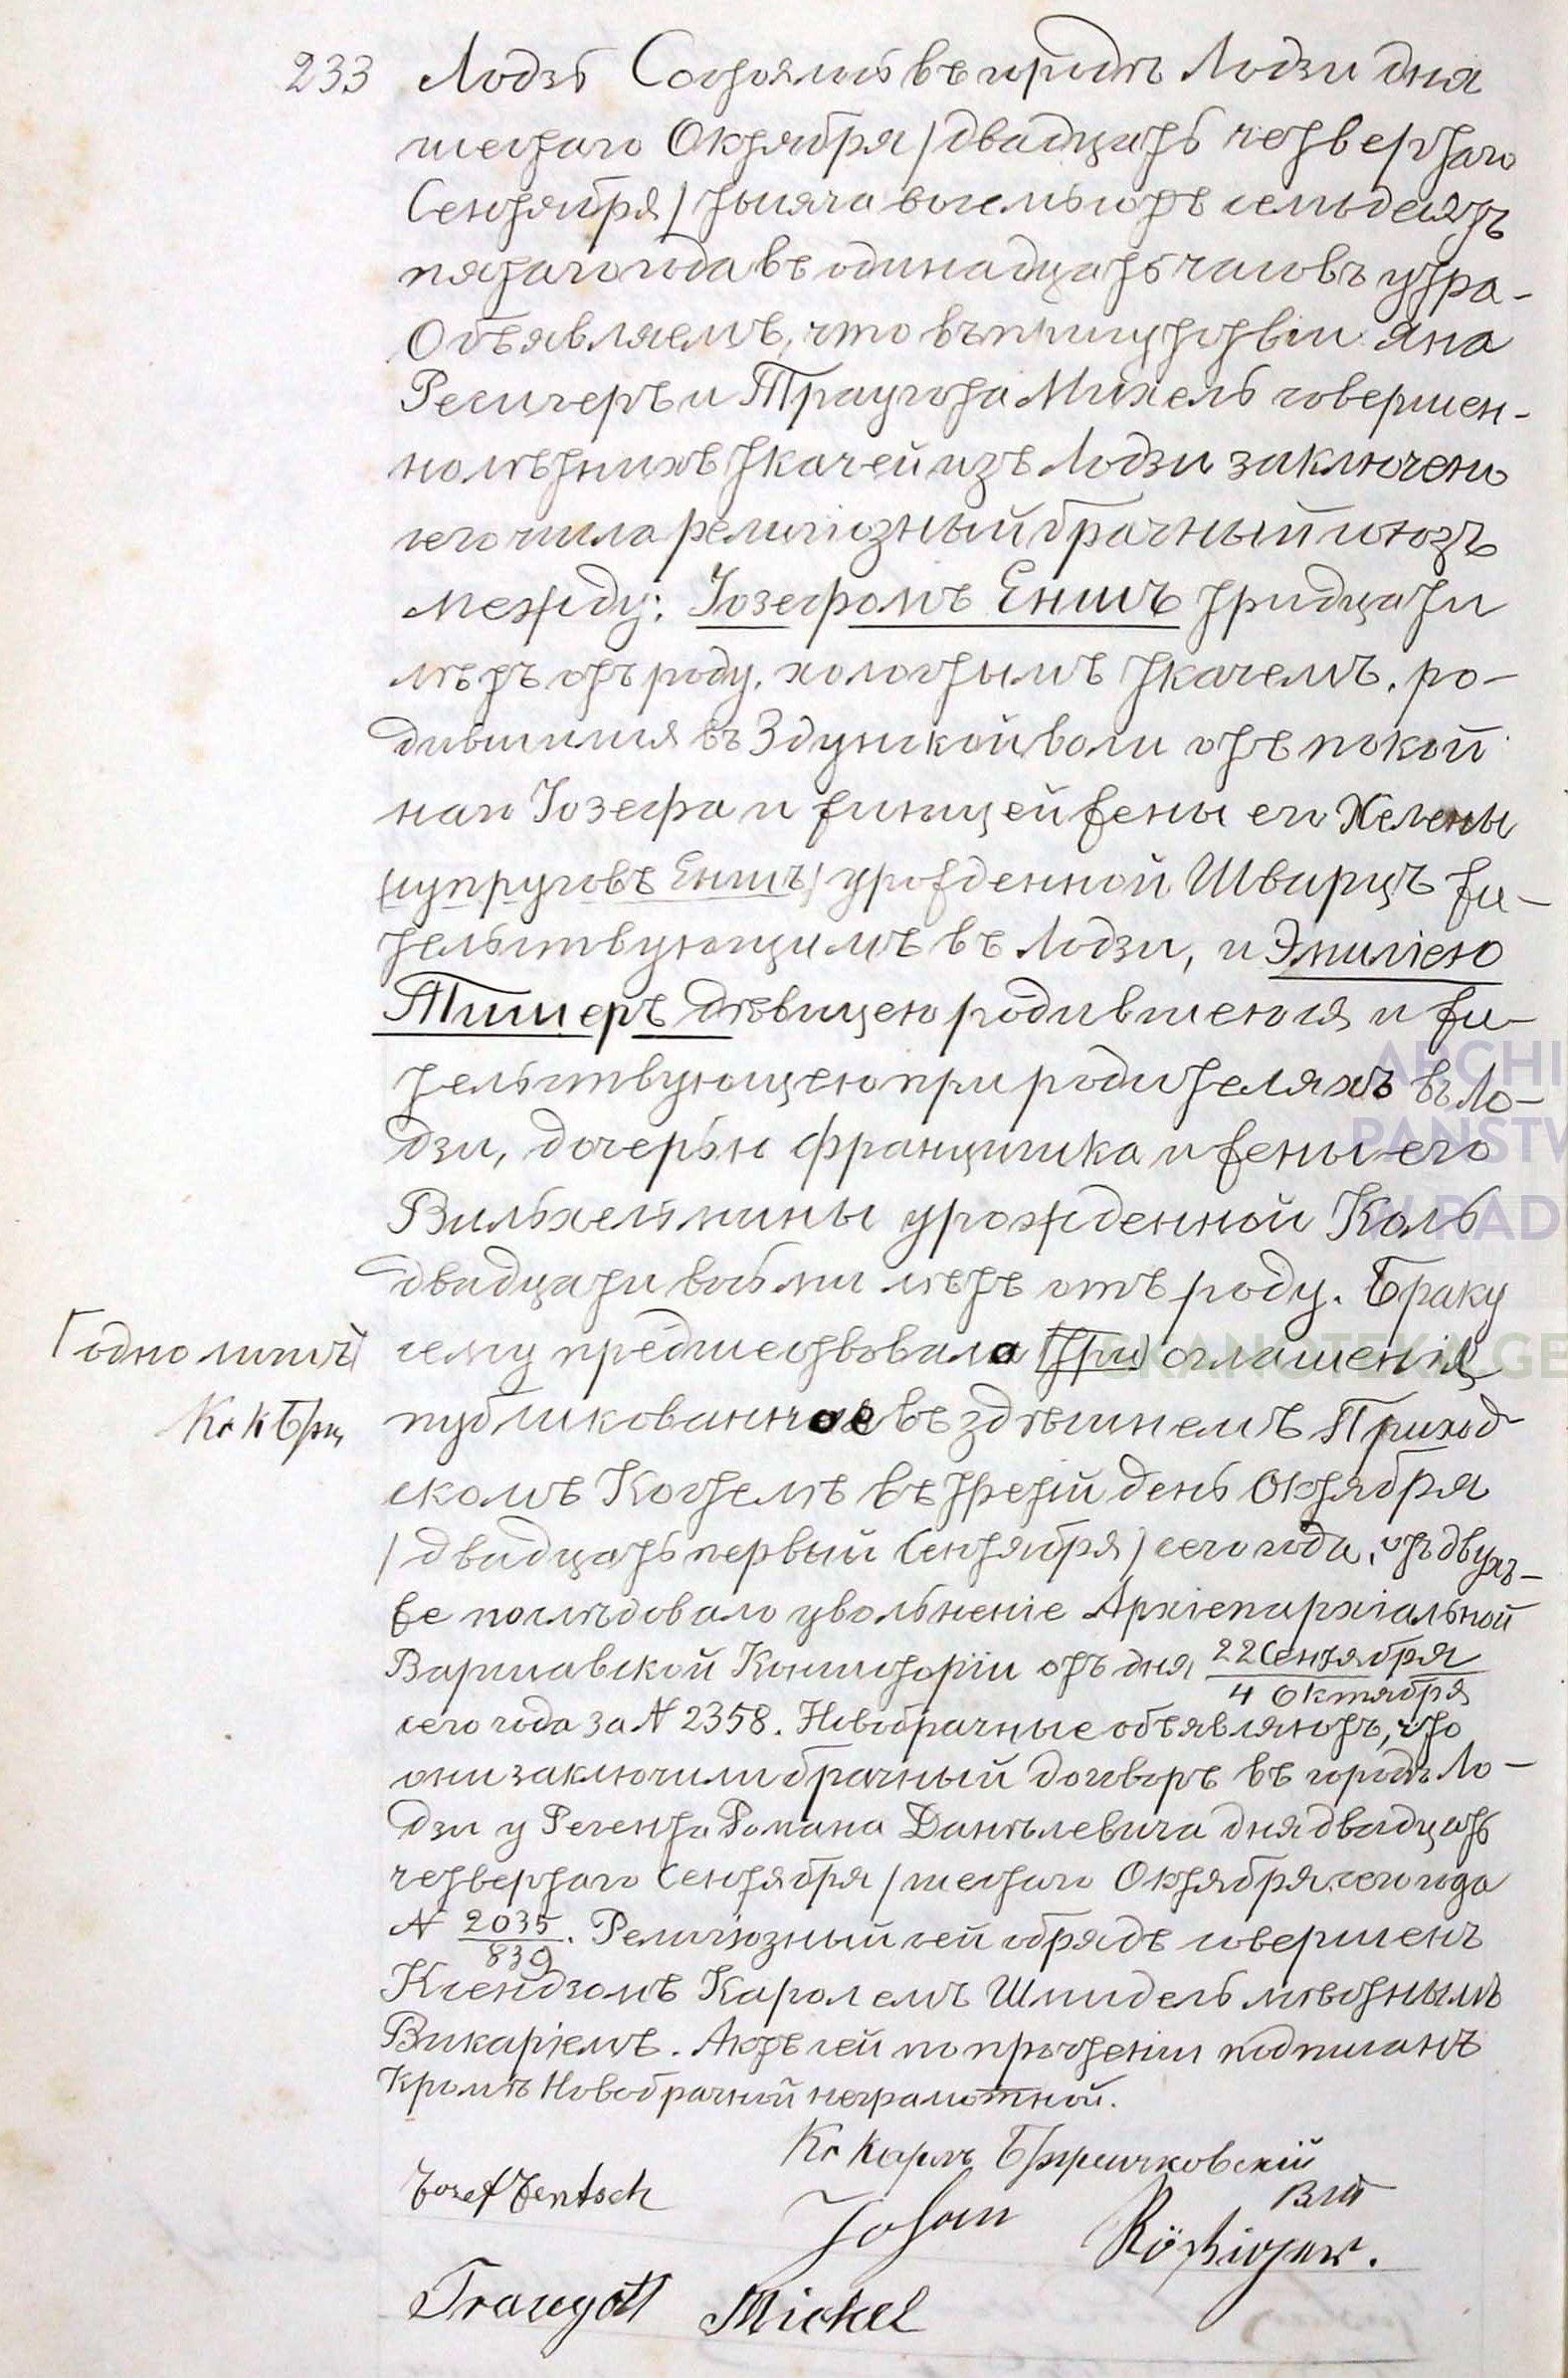 233 Лодзь Состоялось въ городѣ Лодзи дня
шестаго Октября /двадцать четвертаго
Сентября/ тысяча восемьсотъ семьдесятъ
пятаго года въ одинадцать часовъ утра.-
Объявляемъ, что въ присутствіи Яна
Ресигеръ и Траугота Михель совершен-
нолѣтнихъ ткачей изъ Лодзи заключенъ
сего числа религіозный брачный союзъ
между: Іозефомъ Енишъ тридцати
лѣтъ отъ роду, холостымъ ткачемъ, ро-
дившимся въ Здунской воли отъ покой
наго Іозефа и живущей жены его Хелены
(супруговъ Енишъ) урожденной Шварцъ жи-
тельствующимъ въ Лодзи, и Эмиліею
Тишеръ дѣвицею родившеюся и жи-
тельствующею при родителяхъ въ Ло-
дзи, дочерью Францишка и жены его
Вильхельмины урожденной Коль
двадцати восьми лѣтъ отъ роду. Браку
сему предшествовало [три] оглашенія
[одно лишь]
Кс К Брц
публикованное въ здѣшнемъ Приход
скомъ Костелѣ въ третій день Октября
/двадцать первый Сентября/ сего года, отъ двухъ-
же послѣдовало увольненіе Архіепархіальной
Варшавской Консисторіи отъ дня 22 Сентября
4 Октября
сего года за N 2358. Новобрачные объявляютъ, что
они заключили брачный договоръ въ городѣ Ло-
дзи у Регента Романа Данѣлевича дня двадцать
четвертаго Сентября /шестаго Октября сего года
N 2035
839. Религіозный сей обрядъ совершенъ
Ксендзомъ Каролемъ Шмидель мѣстнымъ
Викаріемъ. Актъ сей по прочтеніи подписанъ
кромѣ Новобрачной неграмотной.
Кс Карлъ
Jozef Jentsch
Johan
Traugott Mickel